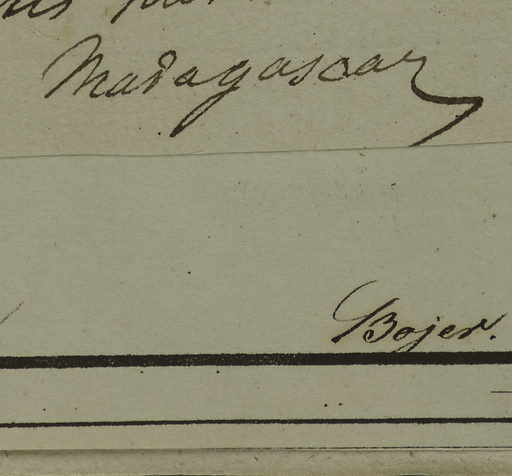 Madagascar
Bojer.